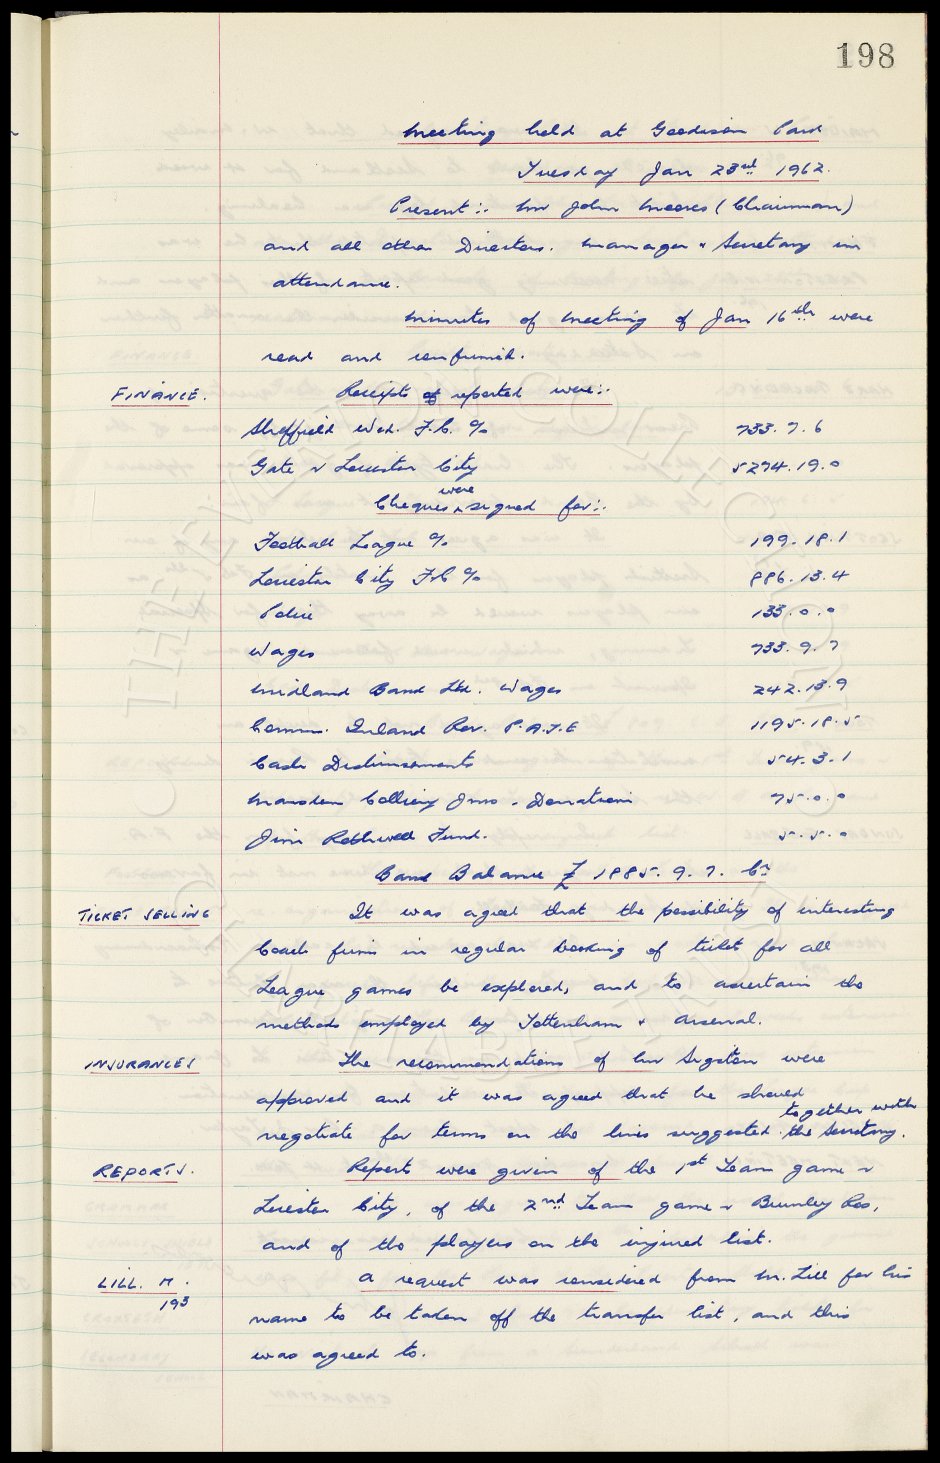 198
Meeting held at Goodison Park
Tuesday Jan 23rd 1962.
Present:- Mr John Moores (Chairman)
and all other Directors. Manager & Secretary in
attendance.
Minutes of Meeting of Jan 16th were
read and confirmed.
FINANCE. Receipts reported were:-
Sheffield Wed. F.C. % 733. 7. 6
Gate v Leicester City 5274. 19. 0
Cheques were signed for:-
Football League % 199. 18. 1
Leicester City F.C % 886. 13. 4
Police 133. 0. 0
Wages 733. 9. 7
Midland Bank Ltd. Wages 242. 13. 9
Comm. Inland Rev. P.A.Y.E 1195. 18. 5
Cash Disbursements 54. 3. 1
Marsden Colliery Jnrs. Donation 75. 0. 0
Jim Rothwell Fund. 5. 5. 0
Bank Balance £ 1885. 9. 7. Cr
TICKET SELLING It was agreed that the possibility of interesting
Coach firms in regular booking of ticket for all
League games be explored, and to ascertain the
methods employed by Tottenham & Arsenal.
INSURANCES The recommendations of Mr Sugston were
approved and it was agreed that he should
negotiate for terms on the lines suggested together with the Secretary.
REPORTS. Reports were given of the 1st Team game v
Leicester City, of the 2nd Team game v Burnley Res,
and of the players on the injured list.
LILL. M. A request was considered from M. Lill for his
193 name to be taken off the transfer list, and this
was agreed to.